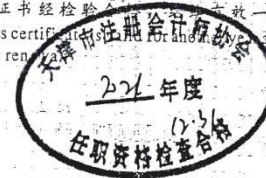 证书经检验合
s certificate is
天津市注册会计师协会
2021 年度
12.31
任职资格检查合格